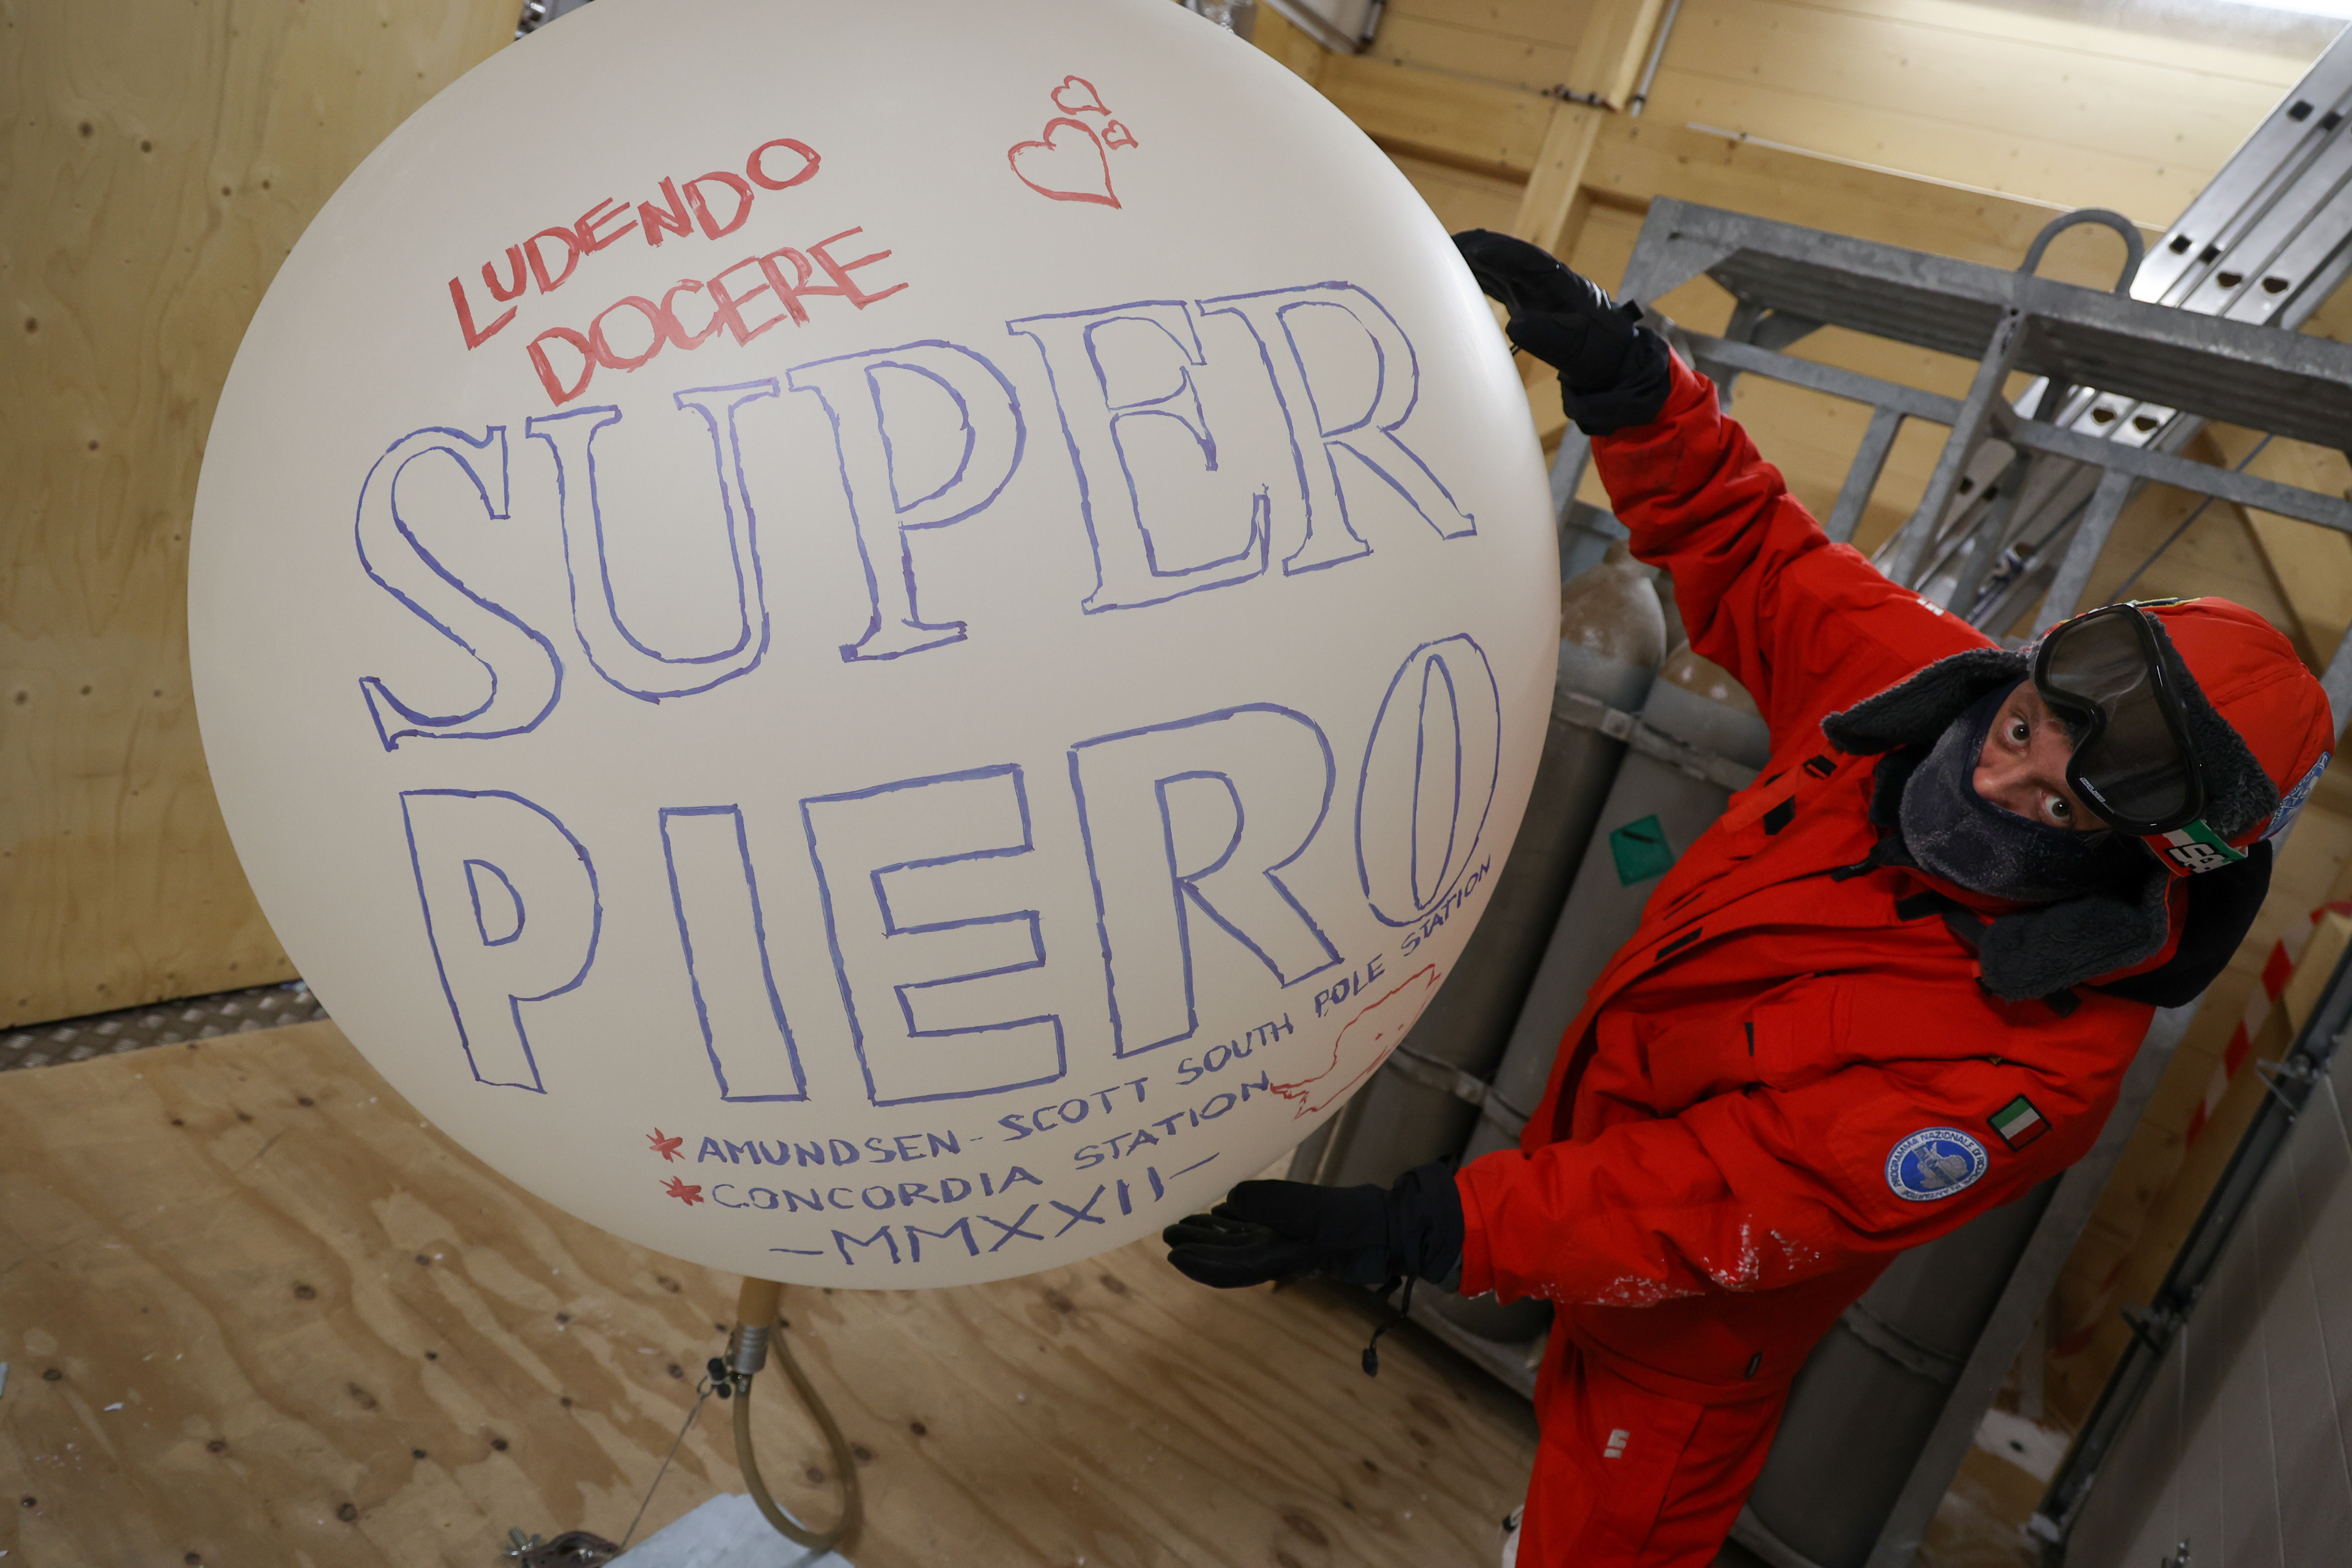 LUDENDO
DOCERE
SUPER
PIERO
*AMUNDSEN-SCOTT SOUTH POLE STATION
*CONCORDIA STATION
-MMXXII-
PROGRAMMA NAZIONALE DI